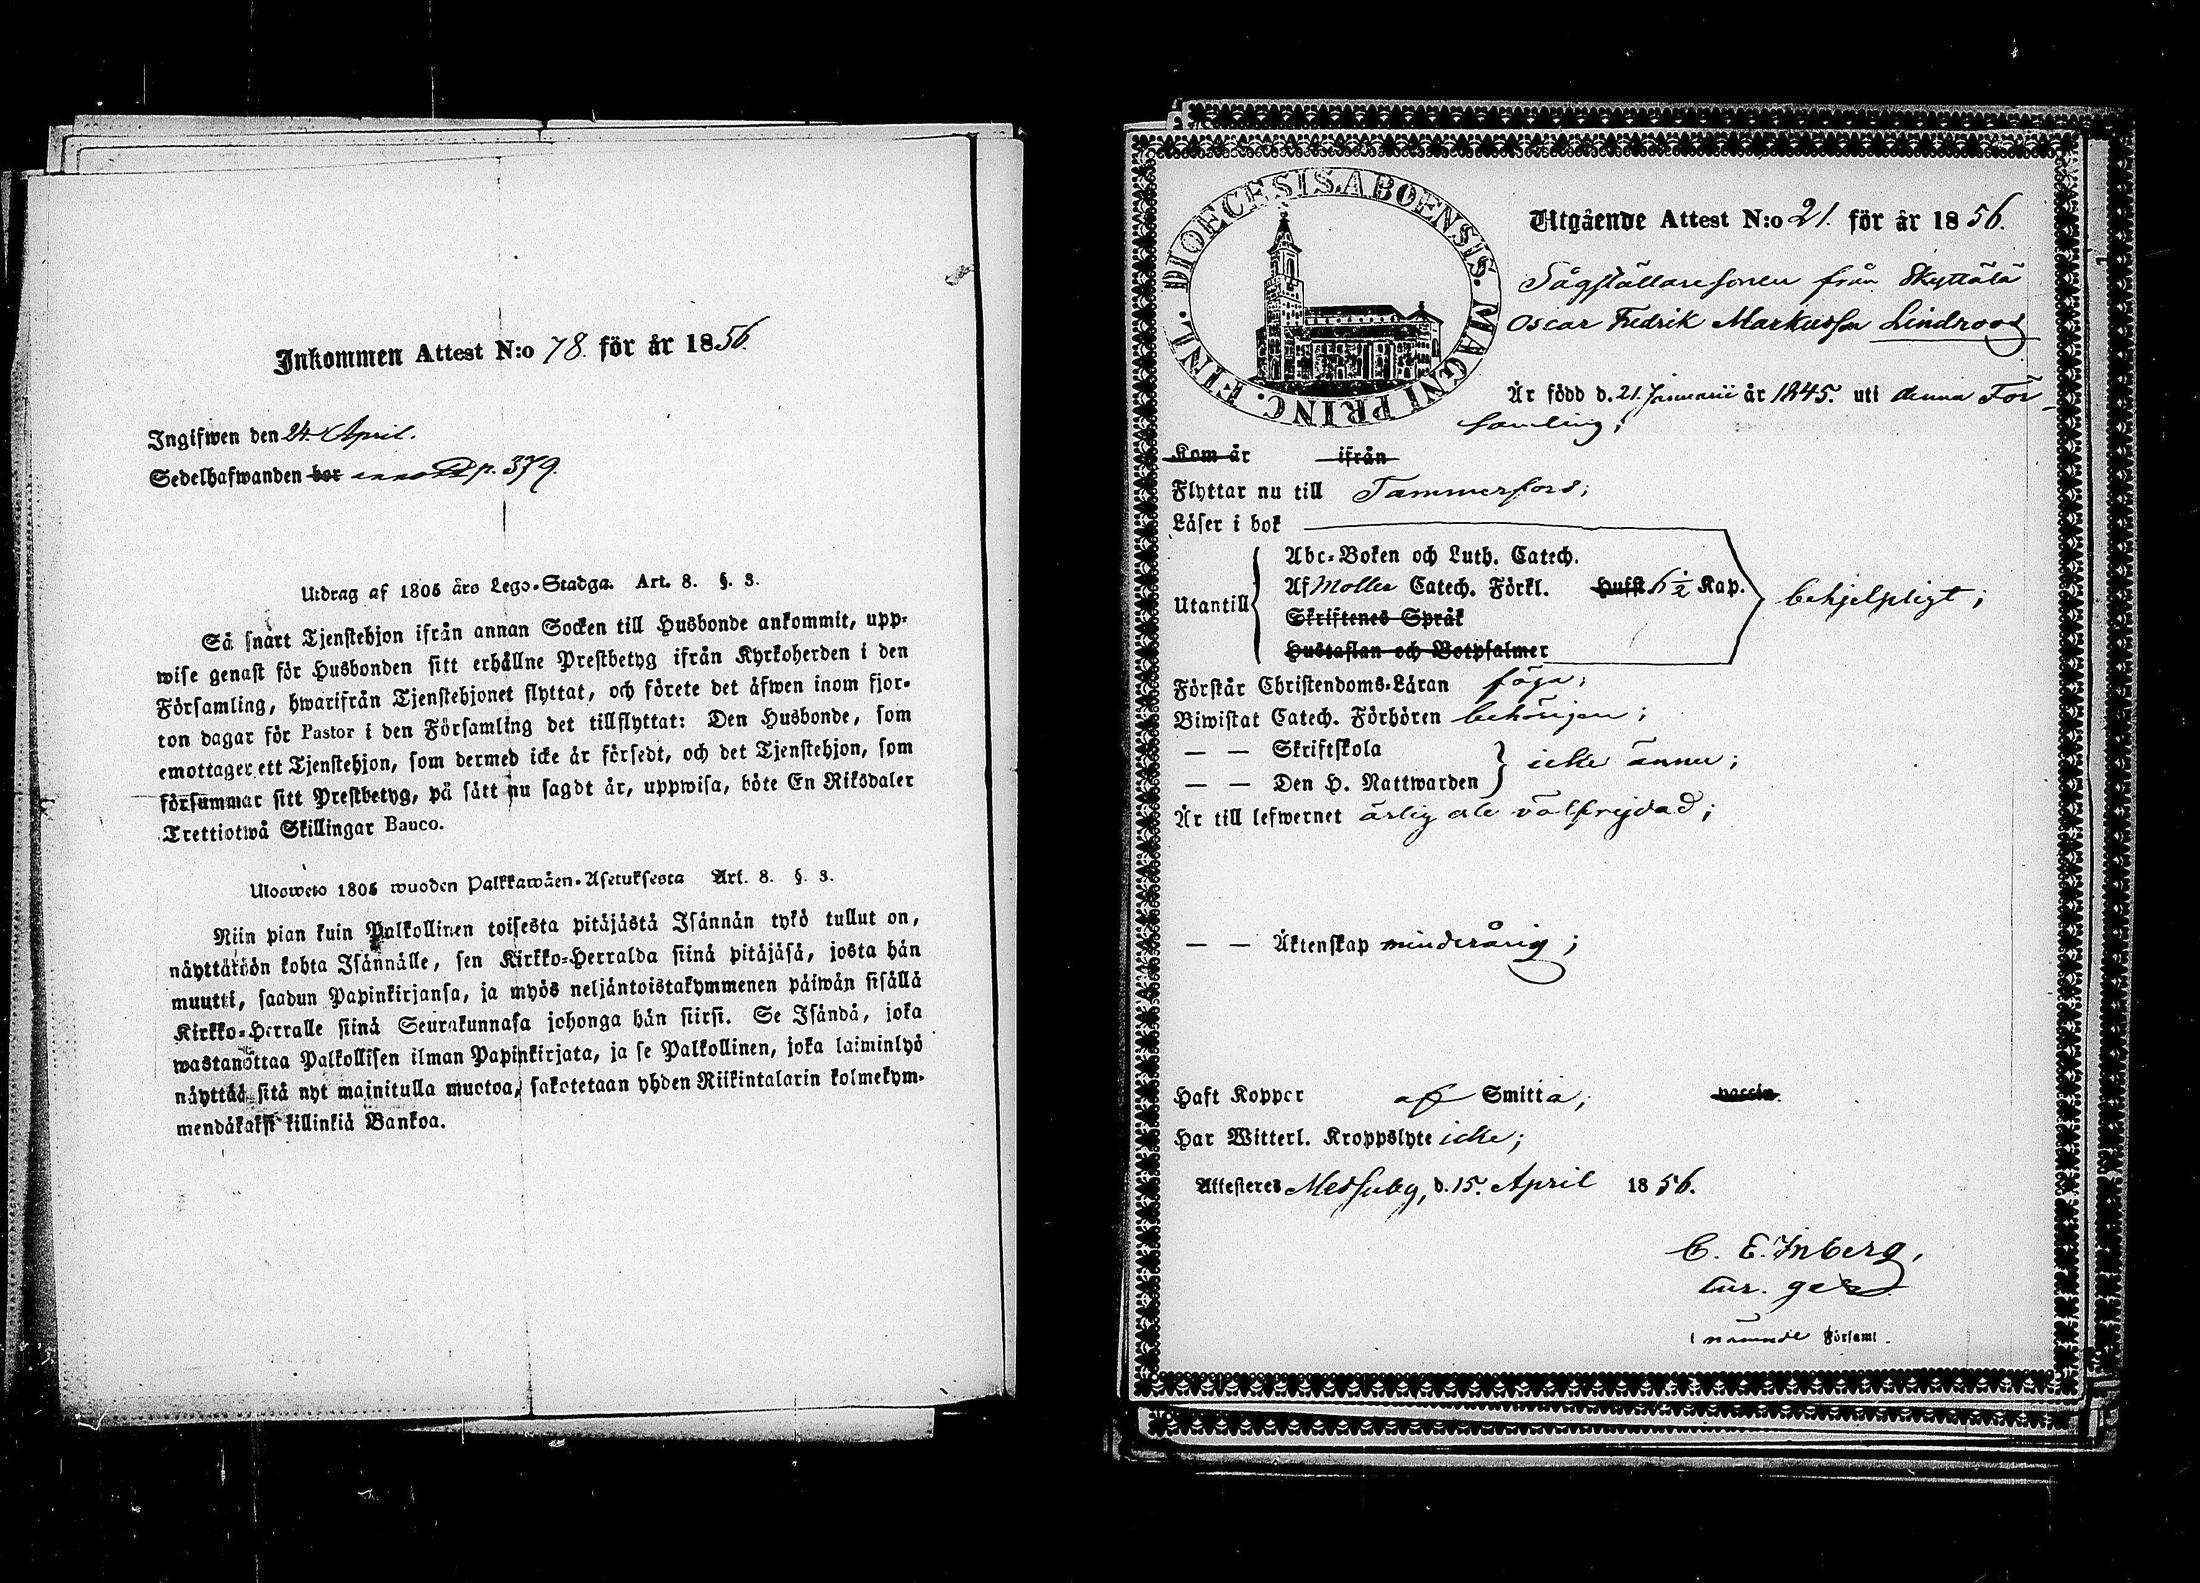 Inkommen Attest N:o 78. för år 1856.
Ingifwen den 24. April.
Sedelhafwanden bor p. 379.
Utdrag af 1805 års Lego-Stadga. Art. 8. §. 3.
Så snart Tjenstehjon ifrån annan Socken till Husbonde ankommit, upp-
wise genast för Husbonden sitt erhållne Prestbetyg ifrån Kyrkoherden i den
Församling, hwarifrån Tjenstehjonet flyttat, och förete det äfwen inom fjor-
ton dagar för Pastor i den Församling det tillflyttat: Den Husbonde, som
emottager ett Tjenstehjon, som dermed icke är försedt, och det Tjenstehjon, som
försummar sitt Prestbetyg, på sätt nu sagdt är, uppwisa, böte En Riksdaler
Trettiotwå Skillingar Bauco.
Ulosweto 1805 wuoden Palkkawäen-Asetuksesta Art. 8. §. 3.
Niin pian kuin Palkollinen toisesta pitäjästä Isännän tykö tullut on,
näyttäköön kohta Isännälle, sen Kirkko-Herralda siinä pitäjäsä, josta hän
muutti, saadun Papinkirjansa, ja myös neljäntoistakymmenen päiwän sisällä
Kirkko-Herralle siinä Seurakunnasa johonga hän siirsi. Se Isändä, joka
wastanottaa Palkollisen ilman Papinkirjata, ja se Palkollinen, joka laiminlyö
näyttää sitä nyt mainitulla muotoa, sakotetaan yhden Riikintalarin kolmekym-
mendäkaksi killinkiä Bankoa.
DIOECESIS. ABOENSIS. MAGNI PRINC. FINL.
Utgående Attest N:o 21. för år 1856.
Sågställaresonen från Skyttälä
Oscar Fredrik Markusson Lindroos
Är född d. 21. Januarii år 1845. uti denna För-
samling;
Kom år ifrån
Flyttar nu till Tammerfors;
Läser i bok
Utantill
Abc-Boken och Luth. Catech.
Af Möller Catech. Förkl. 6 1/2 Kap.
Skriftenes Språk
Hustaflan och Botpsalmer
behjelpligt;
Förstår Christendoms-Läran föga;
Biwistat Catech. Förhören behörigen;
— — Skriftskola
— — Den H. Nattwarden
icke ännu;
Är till lefwernet ärlig och välfrejdad;
— — Äktenskap minderårig;
Haft Kopper af Smitta; vaccin.
Har Witterl. Kroppslyte icke;
Attesteres Messuby, d. 15. April 1856.
C. E. Inberg,
cur. ger.
i nämnde Församl.